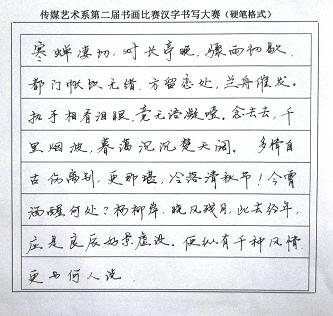 传媒艺术系第二届书画比赛汉字书写大赛（硬笔格式）
寒蝉凄切，对长亭晚，骤雨初歇.
都门帐饮无绪，方留恋处，兰舟催发。
执手相看泪眼，竟无语凝噎，念去去，千
里烟波，暮霭沉沉楚天阔。多情自
古伤离别，更那堪，冷落清秋节！今宵
酒醒何处？杨柳岸，晓风残月，此去经年，
应是良辰好景虚设。便纵有千种风情.
更与何人说.